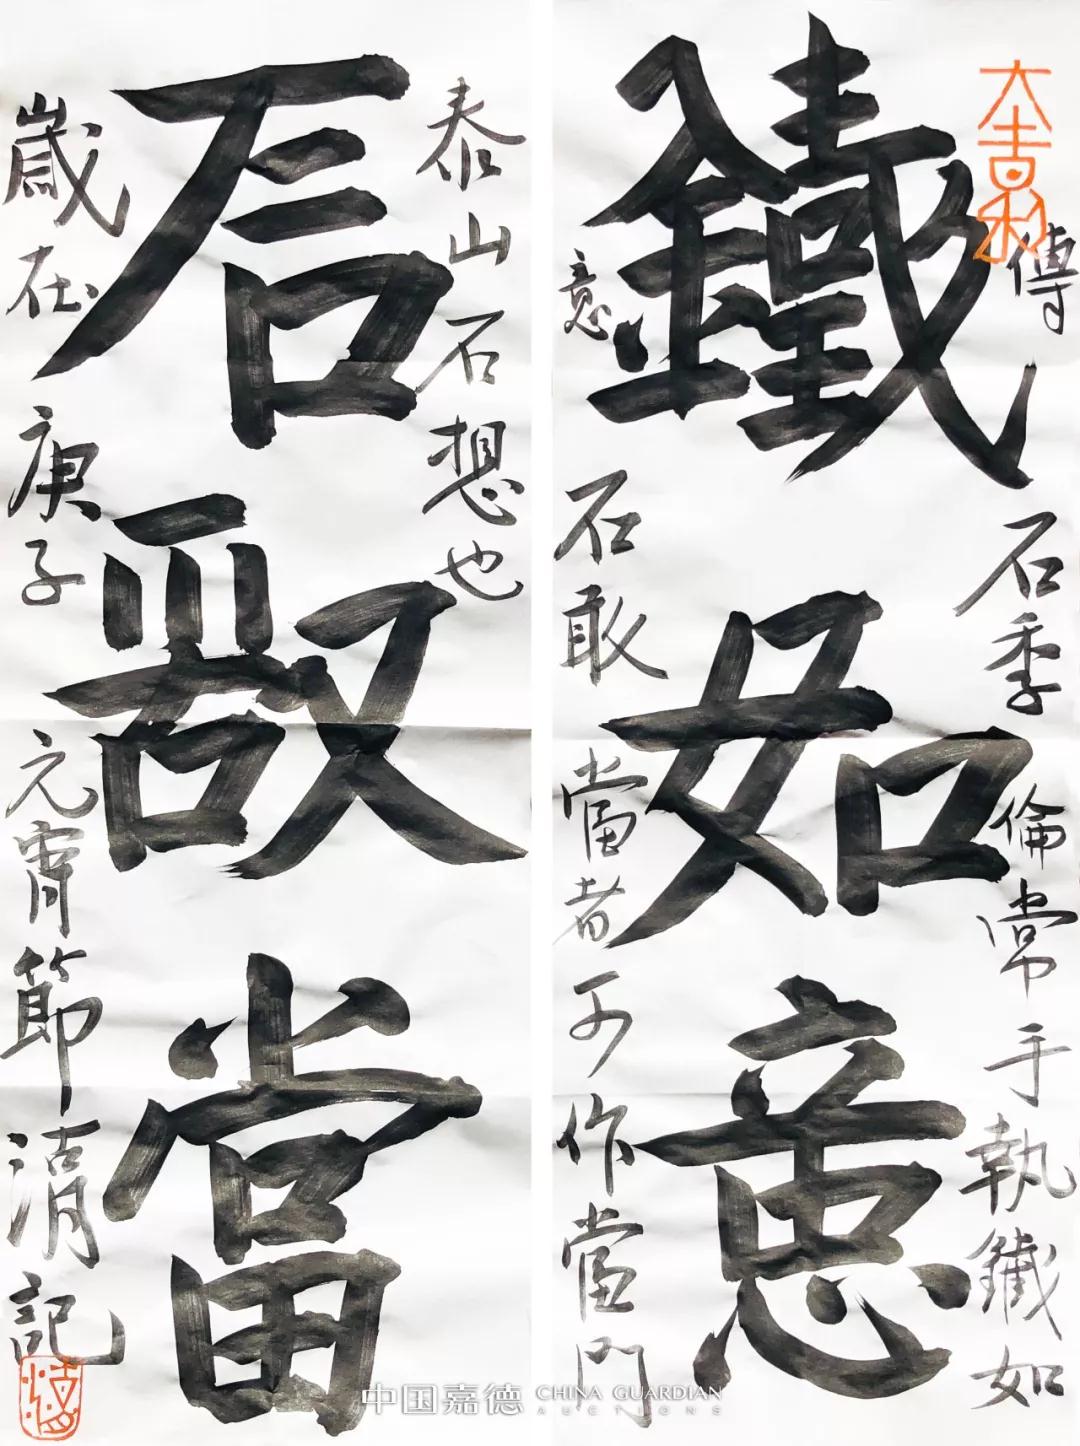 鐵如意
石敢當
傳石季倫常手執鐵如
意石敢當者可作當門
泰山石想也
歲在庚子元宵節涓記
大吉利
中国嘉德 CHINA GUARDIAN
AUCTIONS